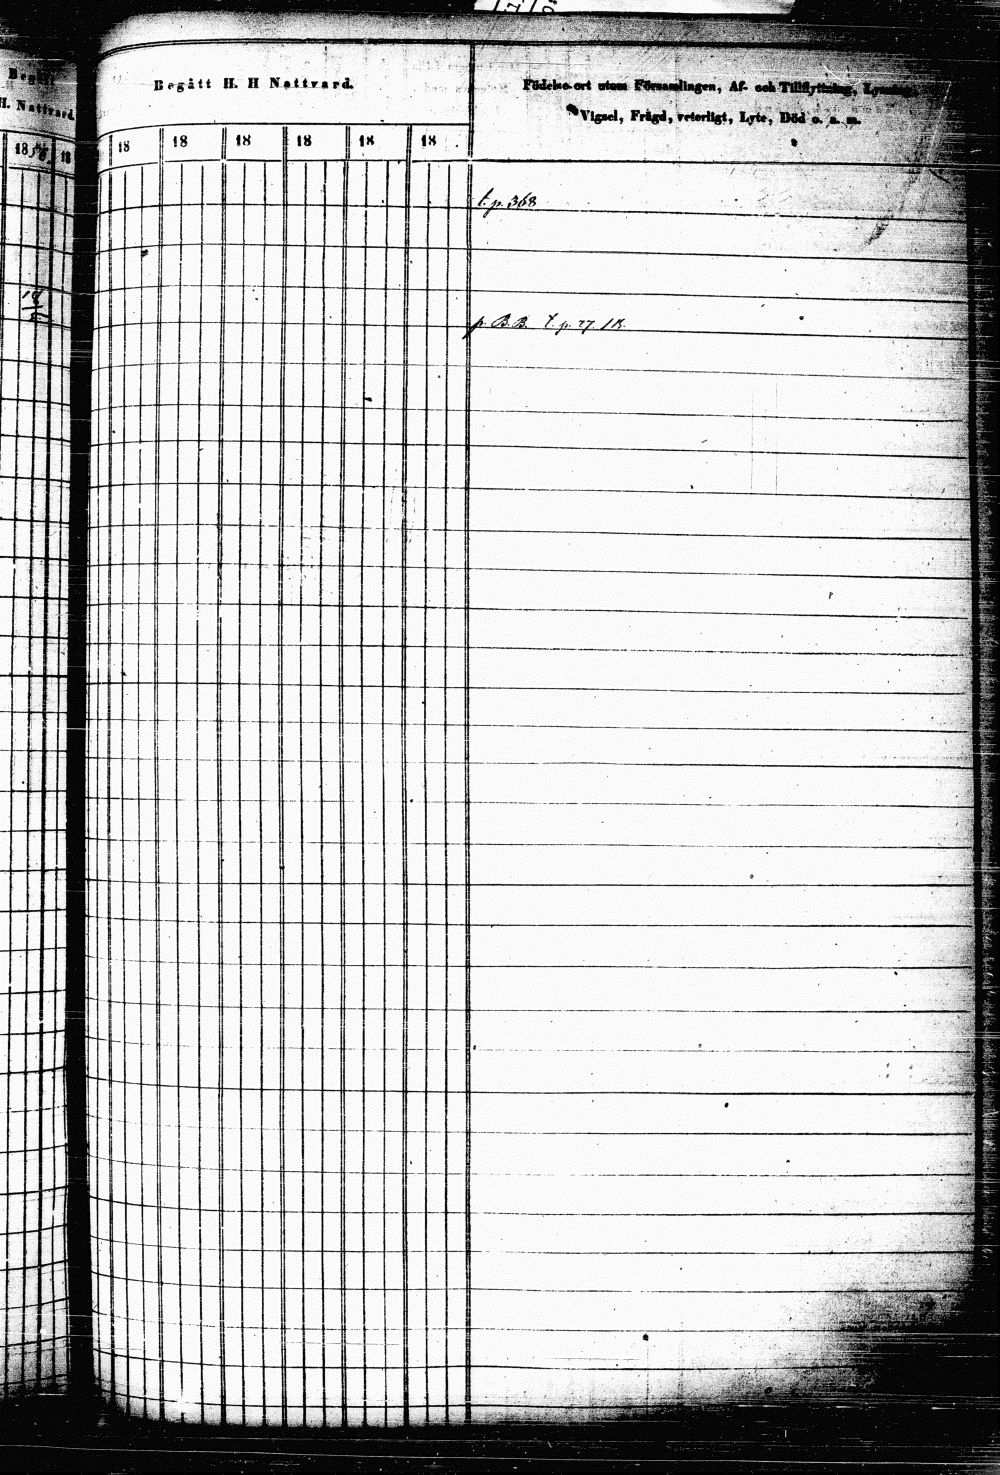 H. Nattvard
18 56. 18
Begått H. H Nattvard.
Födelse-ort utom Församlingen, Af- och Tillflyttning, Lysning,
Vigsel, Frägd, veterligt, Lyte, Död o. s. m.
18 18 18 18 18 18
t. p. 368
p. B.B. t. p. 27